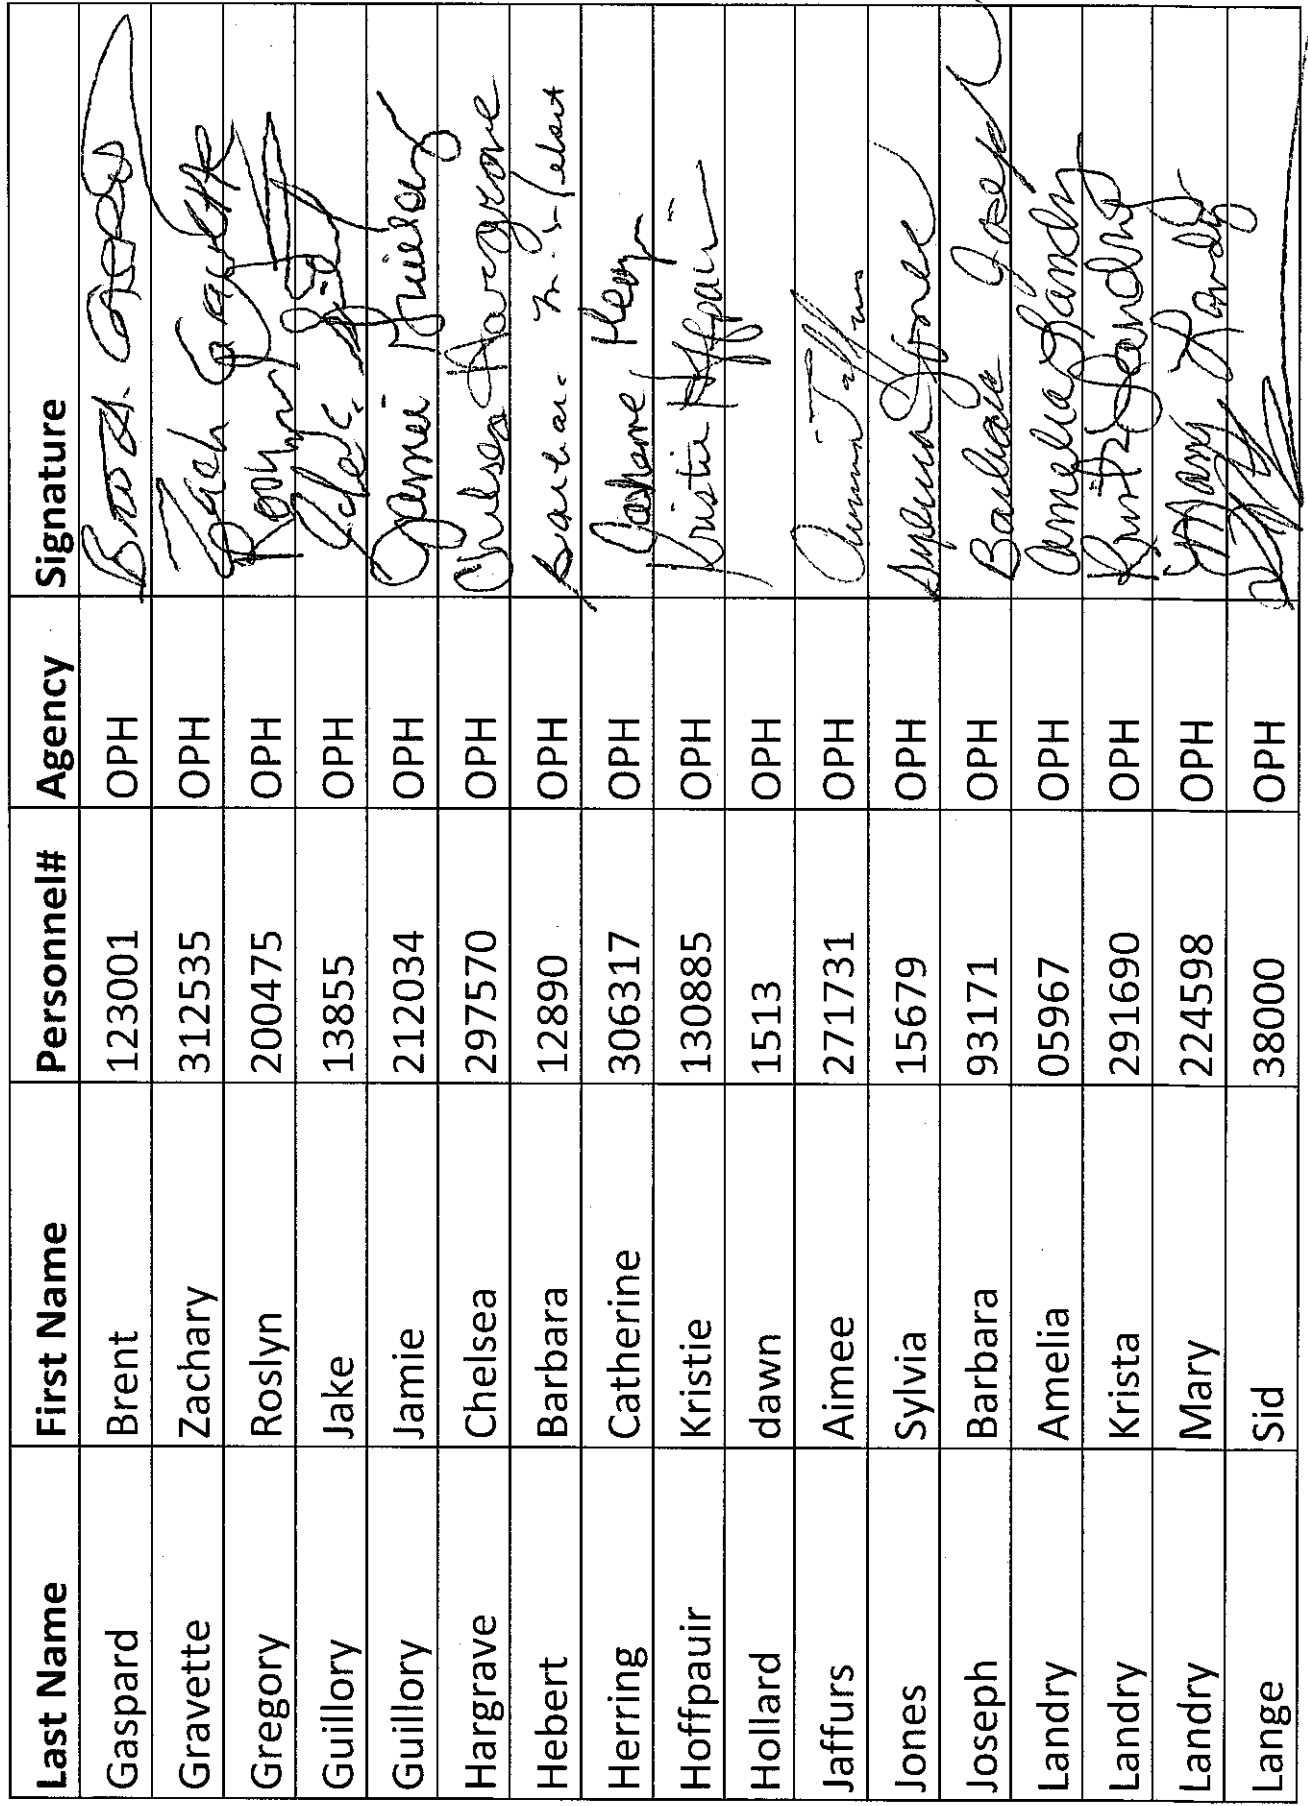 Last Name First Name Personnel# Agency Signature
Gaspard Brent 123001 OPH
Gravette Zachary 312535 OPH Zach
Gregory Roslyn 200475 OPH
Guillory Jake 13855 OPH
Guillory Jamie 212034 OPH Jamie
Hargrave Chelsea 297570 OPH Chelsea Hargrave
Hebert Barbara 12890 OPH Barbara M. Hebert
Herring Catherine 306317 OPH
Hoffpauir Kristie 130885 OPH Kristie Hoffpauir
Hollard dawn 1513 OPH
Jaffurs Aimee 271731 OPH
Jones Sylvia 15679 OPH Sylvia Jones
Joseph Barbara 93171 OPH Barbara Joseph
Landry Amelia 05967 OPH Amelia Landry
Landry Krista 291690 OPH Krista Landry
Landry Mary 224598 OPH Mary Landry
Lange Sid 38000 OPH